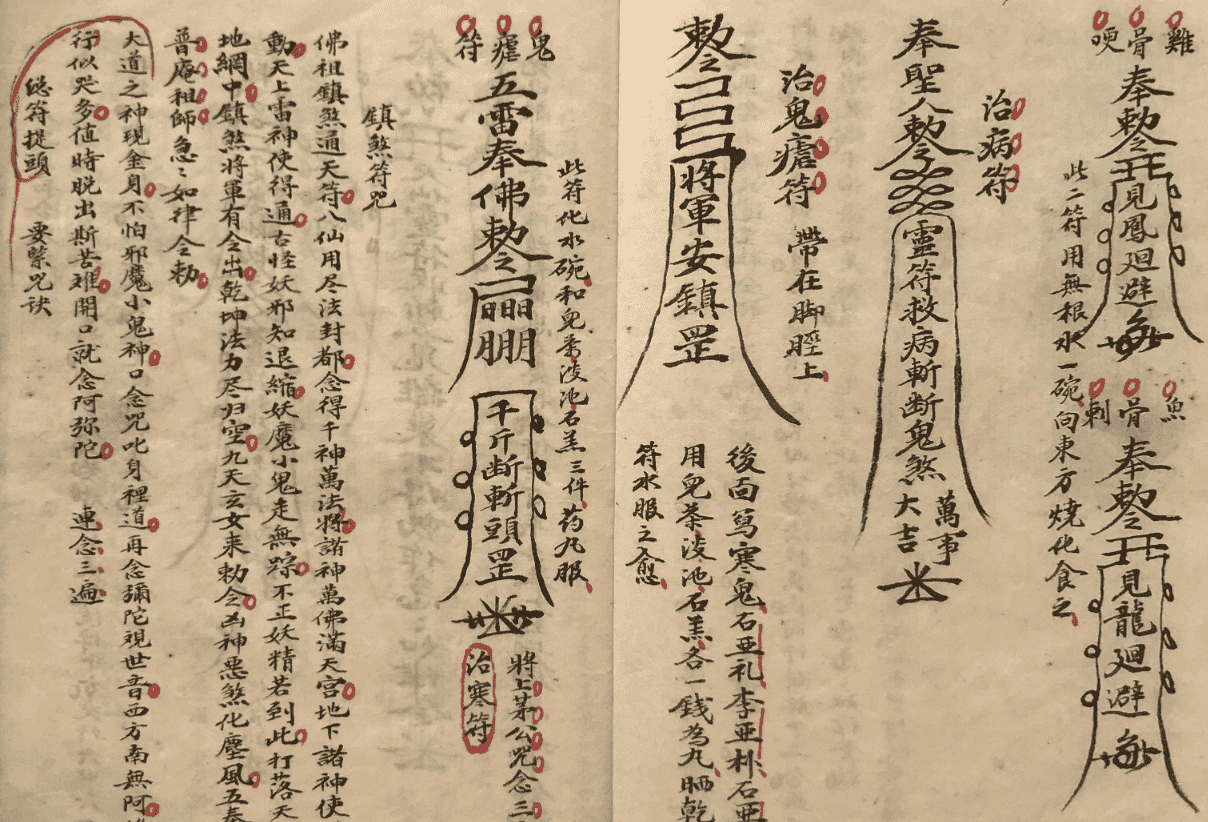 雞骨哽
奉勅令
見鳳廻避
魚骨刺
奉勅令
見龍廻避
此二符用無根水一碗向東方燒化食之
治病符
奉聖人勅令
靈符救病斬断鬼煞
萬事
大吉
治鬼瘧符 帶在脚脛上
勅令
將軍安鎮罡
後面写寒鬼石亜礼李亜朴石亜
用兒茶淩池石羔各一錢為丸晒乾
符水服之愈
此符化水碗和兒茶淩池石羔三件药丸服
鬼瘧符
五雷奉佛勅令
千斤断斬頭罡
將上茅公咒念三
治寒符
鎮煞符咒
佛祖鎮煞通天符八仙用尽法封都念得千神萬法將諸神萬佛滿天宮地下諸神使
動天上雷神使得通古怪妖邪知退縮妖魔小鬼走無踪不正妖精若到此打落天
地網中鎮煞將軍有令出乾坤法力尽归空九天玄女来勅令凶神惡煞化塵風五奉
普庵祖師急〻如律令勅
大道之神現金身不怕邪魔小鬼神口念咒叱身裡道再念彌陀視世音西方南無阿
行似哭多值時脱出斯苦难開口就念阿弥陀 連念三遍
總符提頭 要緊咒诀